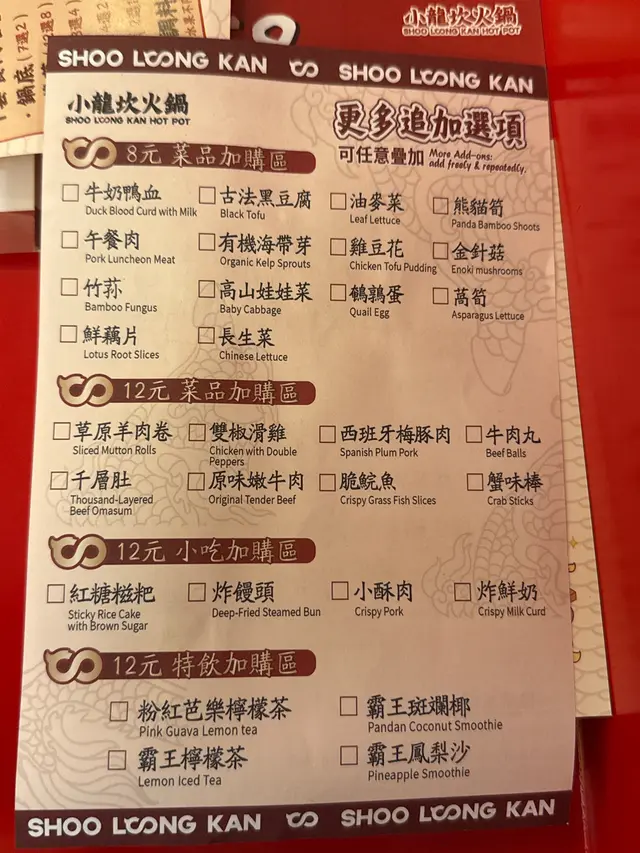 鍋底(7選2)
小龍坎火鍋
SHOO LOONG KAN HOT POT
SHOO LOONG KAN SHOO LOONG KAN
小龍坎火鍋
SHOO LOONG KAN HOT POT
更多追加選項
可任意疊加 More Add-ons: add freely & repeatedly.
8元 菜品加購區
牛奶鴨血 古法黑豆腐 油麥菜 熊貓筍
Duck Blood Curd with Milk Black Tofu Leaf Lettuce Panda Bamboo Shoots
午餐肉 有機海帶芽 雞豆花 金針菇
Pork Luncheon Meat Organic Kelp Sprouts Chicken Tofu Pudding Enoki mushrooms
竹荪 高山娃娃菜 鵪鶉蛋 萵筍
Bamboo Fungus Baby Cabbage Quail Egg Asparagus Lettuce
鮮藕片 長生菜
Lotus Root Slices Chinese Lettuce
12元 菜品加購區
草原羊肉卷 雙椒滑雞 西班牙梅豚肉 牛肉丸
Sliced Mutton Rolls Chicken with Double Peppers Spanish Plum Pork Beef Balls
千層肚 原味嫩牛肉 脆鯇魚 蟹味棒
Thousand-Layered Beef Omasum Original Tender Beef Crispy Grass Fish Slices Crab Sticks
12元 小吃加購區
紅糖糍粑 炸饅頭 小酥肉 炸鮮奶
Sticky Rice Cake with Brown Sugar Deep-Fried Steamed Bun Crispy Pork Crispy Milk Curd
12元 特飲加購區
粉紅芭樂檸檬茶 霸王斑斕椰
Pink Guava Lemon tea Pandan Coconut Smoothie
霸王檸檬茶 霸王鳳梨沙
Lemon Iced Tea Pineapple Smoothie
SHOO LOONG KAN SHOO LOONG KAN